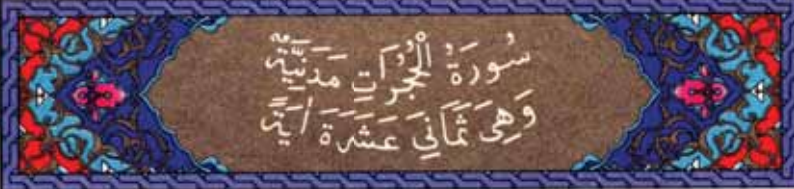 سُورَةُ الْحُجُرَاتِ مَدَنِيَّةٌ
وَهِيَ ثَمَانِيَ عَشَرَةَ اٰيَةً